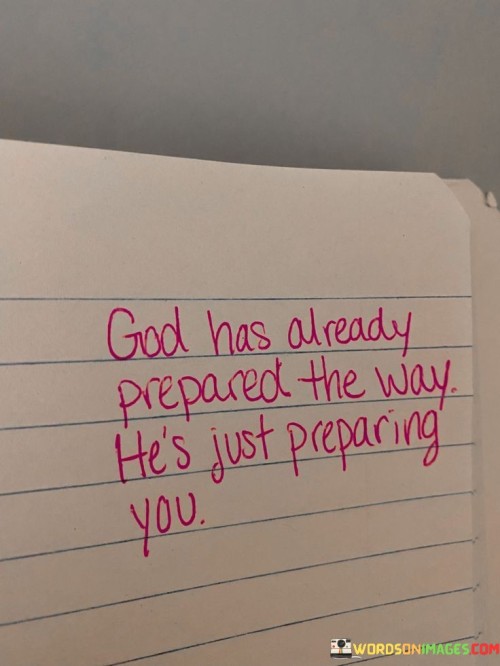 God has already
prepared the way.
He's just preparing
you.
WORDSONIMAGES.COM